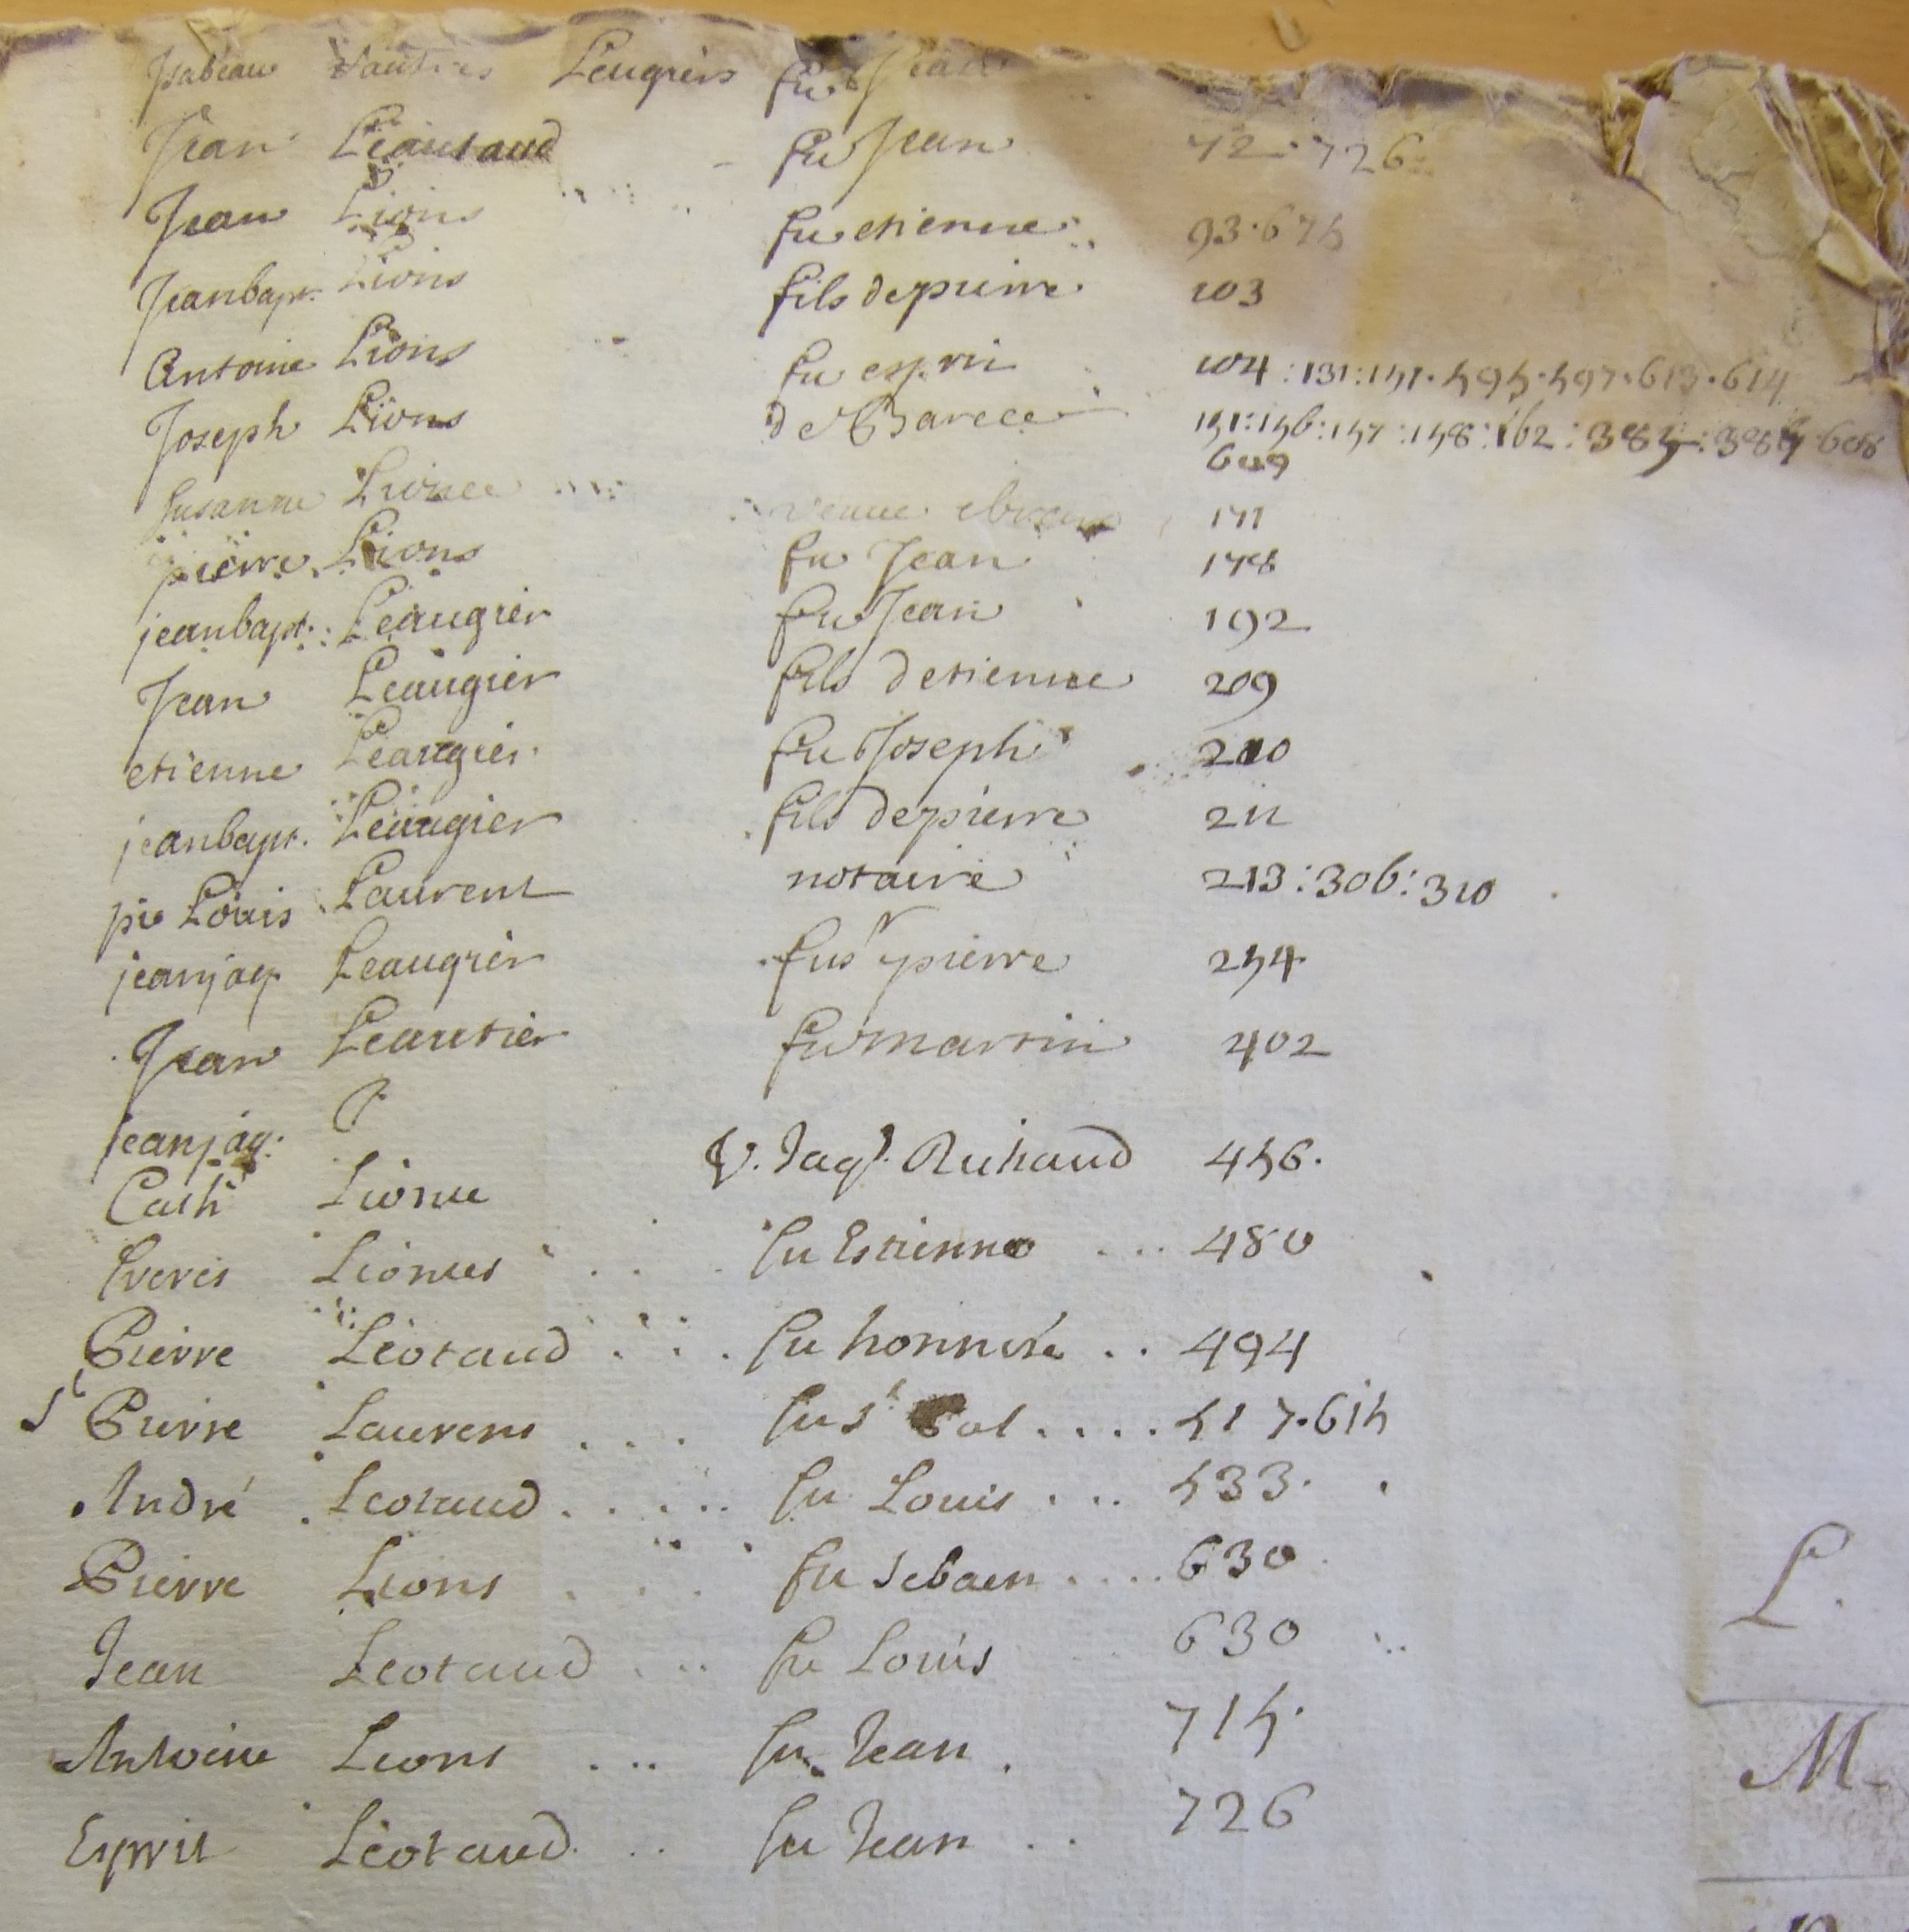 Isabeau Leaugiers fu Jean
Jean Leautaud fu Jean 72 · 726
Jean Lions fu etienne 93 · 675
Jeanbapt. Lions fils de pierre 103
Antoine Lions fu esprit 104 : 131 : 151 · 595 · 597 · 613 · 614
Joseph Lions de Barece 151 : 156 : 157 : 158 : 162 : 385 : 389 · 608
609
Susanne Lionce veuve 171
pierre Lions fu Jean 178
jeanbapt. Leaugier fu Jean 192
Jean Leaugier fils detienne 209
etienne Leaugier fu Joseph 210
jeanbapt. Leaugier fils depierre 211
pre Louis Laurent notaire 213 : 306 : 310
jeanjaq. Leaugier fu sr pierre 254
Jean Leautier fu martin 402
jeanjaq.
Cath Lionne V. Jaqs. Richaud 456.
freres Lionnes fu Estienne ... 480
Pierre Léotaud ... fu honnoré .. 494
Sr Pierre Laurens ... fu Sr .... 517 · 615
André Leotaud ..... fu Louis ... 533.
Pierre Lions fu Sebaen .... 630
Jean Leotaud ... fu Louis 630
Antoine Lions ... fu Jean . 715.
Esprit Léotaud .. fu Jean .. 726
L.
M.